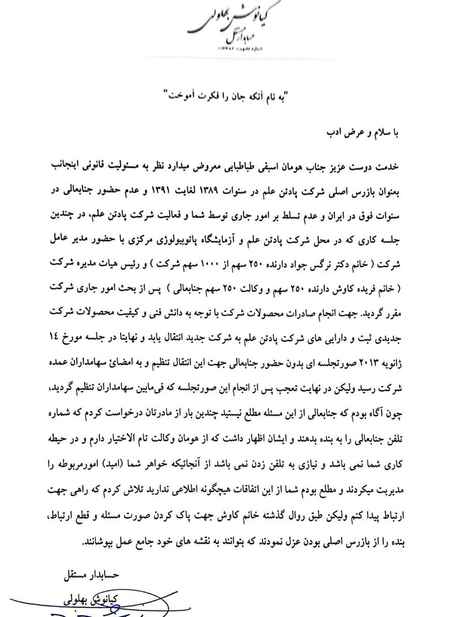 کیانوش بهلولی
حسابدار مستقل
"به نام آنکه جان را فکرت آموخت"
با سلام و عرض ادب
خدمت دوست عزیز جناب هومان اسبقی طباطبایی معروض میدارد نظر به مسئولیت قانونی اینجانب
بعنوان بازرس اصلی شرکت پادتن علم در سنوات ۱۳۸۹ لغایت ۱۳۹۱ و عدم حضور جنابعالی در
سنوات فوق در ایران و عدم تسلط بر امور جاری توسط شما و فعالیت شرکت پادتن علم، در چندین
جلسه کاری که در محل شرکت پادتن علم و آزمایشگاه پاتوبیولوژی مرکزی با حضور مدیر عامل
شرکت ( خانم دکتر نرگس جواد دارنده ۲۵۰ سهم از ۱۰۰۰ سهم شرکت ) و رئیس هیات مدیره شرکت
( خانم فریده کاوش دارنده ۲۵۰ سهم و وکالت ۲۵۰ سهم جنابعالی ) پس از بحث امور جاری شرکت
مقرر گردید. جهت انجام صادرات محصولات شرکت با توجه به دانش فنی و کیفیت محصولات شرکت
جدیدی ثبت و دارایی های شرکت پادتن علم به شرکت جدید انتقال یابد و نهایتا در جلسه مورخ ۱٤
ژانویه ۲۰۱۳ صورتجلسه ای بدون حضور جنابعالی جهت این انتقال تنظیم و به امضائ سهامداران عمده
شرکت رسید ولیکن در نهایت تعجب پس از انجام این صورتجلسه که فی‌مابین سهامداران تنظیم گردید،
چون آگاه بودم که جنابعالی از این مسئله مطلع نیستید چندین بار از مادرتان درخواست کردم که شماره
تلفن جنابعالی را به بنده بدهند و ایشان اظهار داشت که از هومان وکالت تام الاختیار دارم و در حیطه
کاری شما نمی باشد و نیازی به تلفن زدن نمی باشد از آنجائیکه خواهر شما (امید) امورمربوطه را
مدیریت میکردند و مطلع بودم شما از این اتفاقات هیچگونه اطلاعی ندارید تلاش کردم که راهی جهت
ارتباط پیدا کنم ولیکن طبق روال گذشته خانم کاوش جهت پاک کردن صورت مسئله و قطع ارتباط،
بنده را از بازرس اصلی بودن عزل نمودند که بتوانند به نقشه های خود جامع عمل بپوشانند.
حسابدار مستقل
کیانوش بهلولی